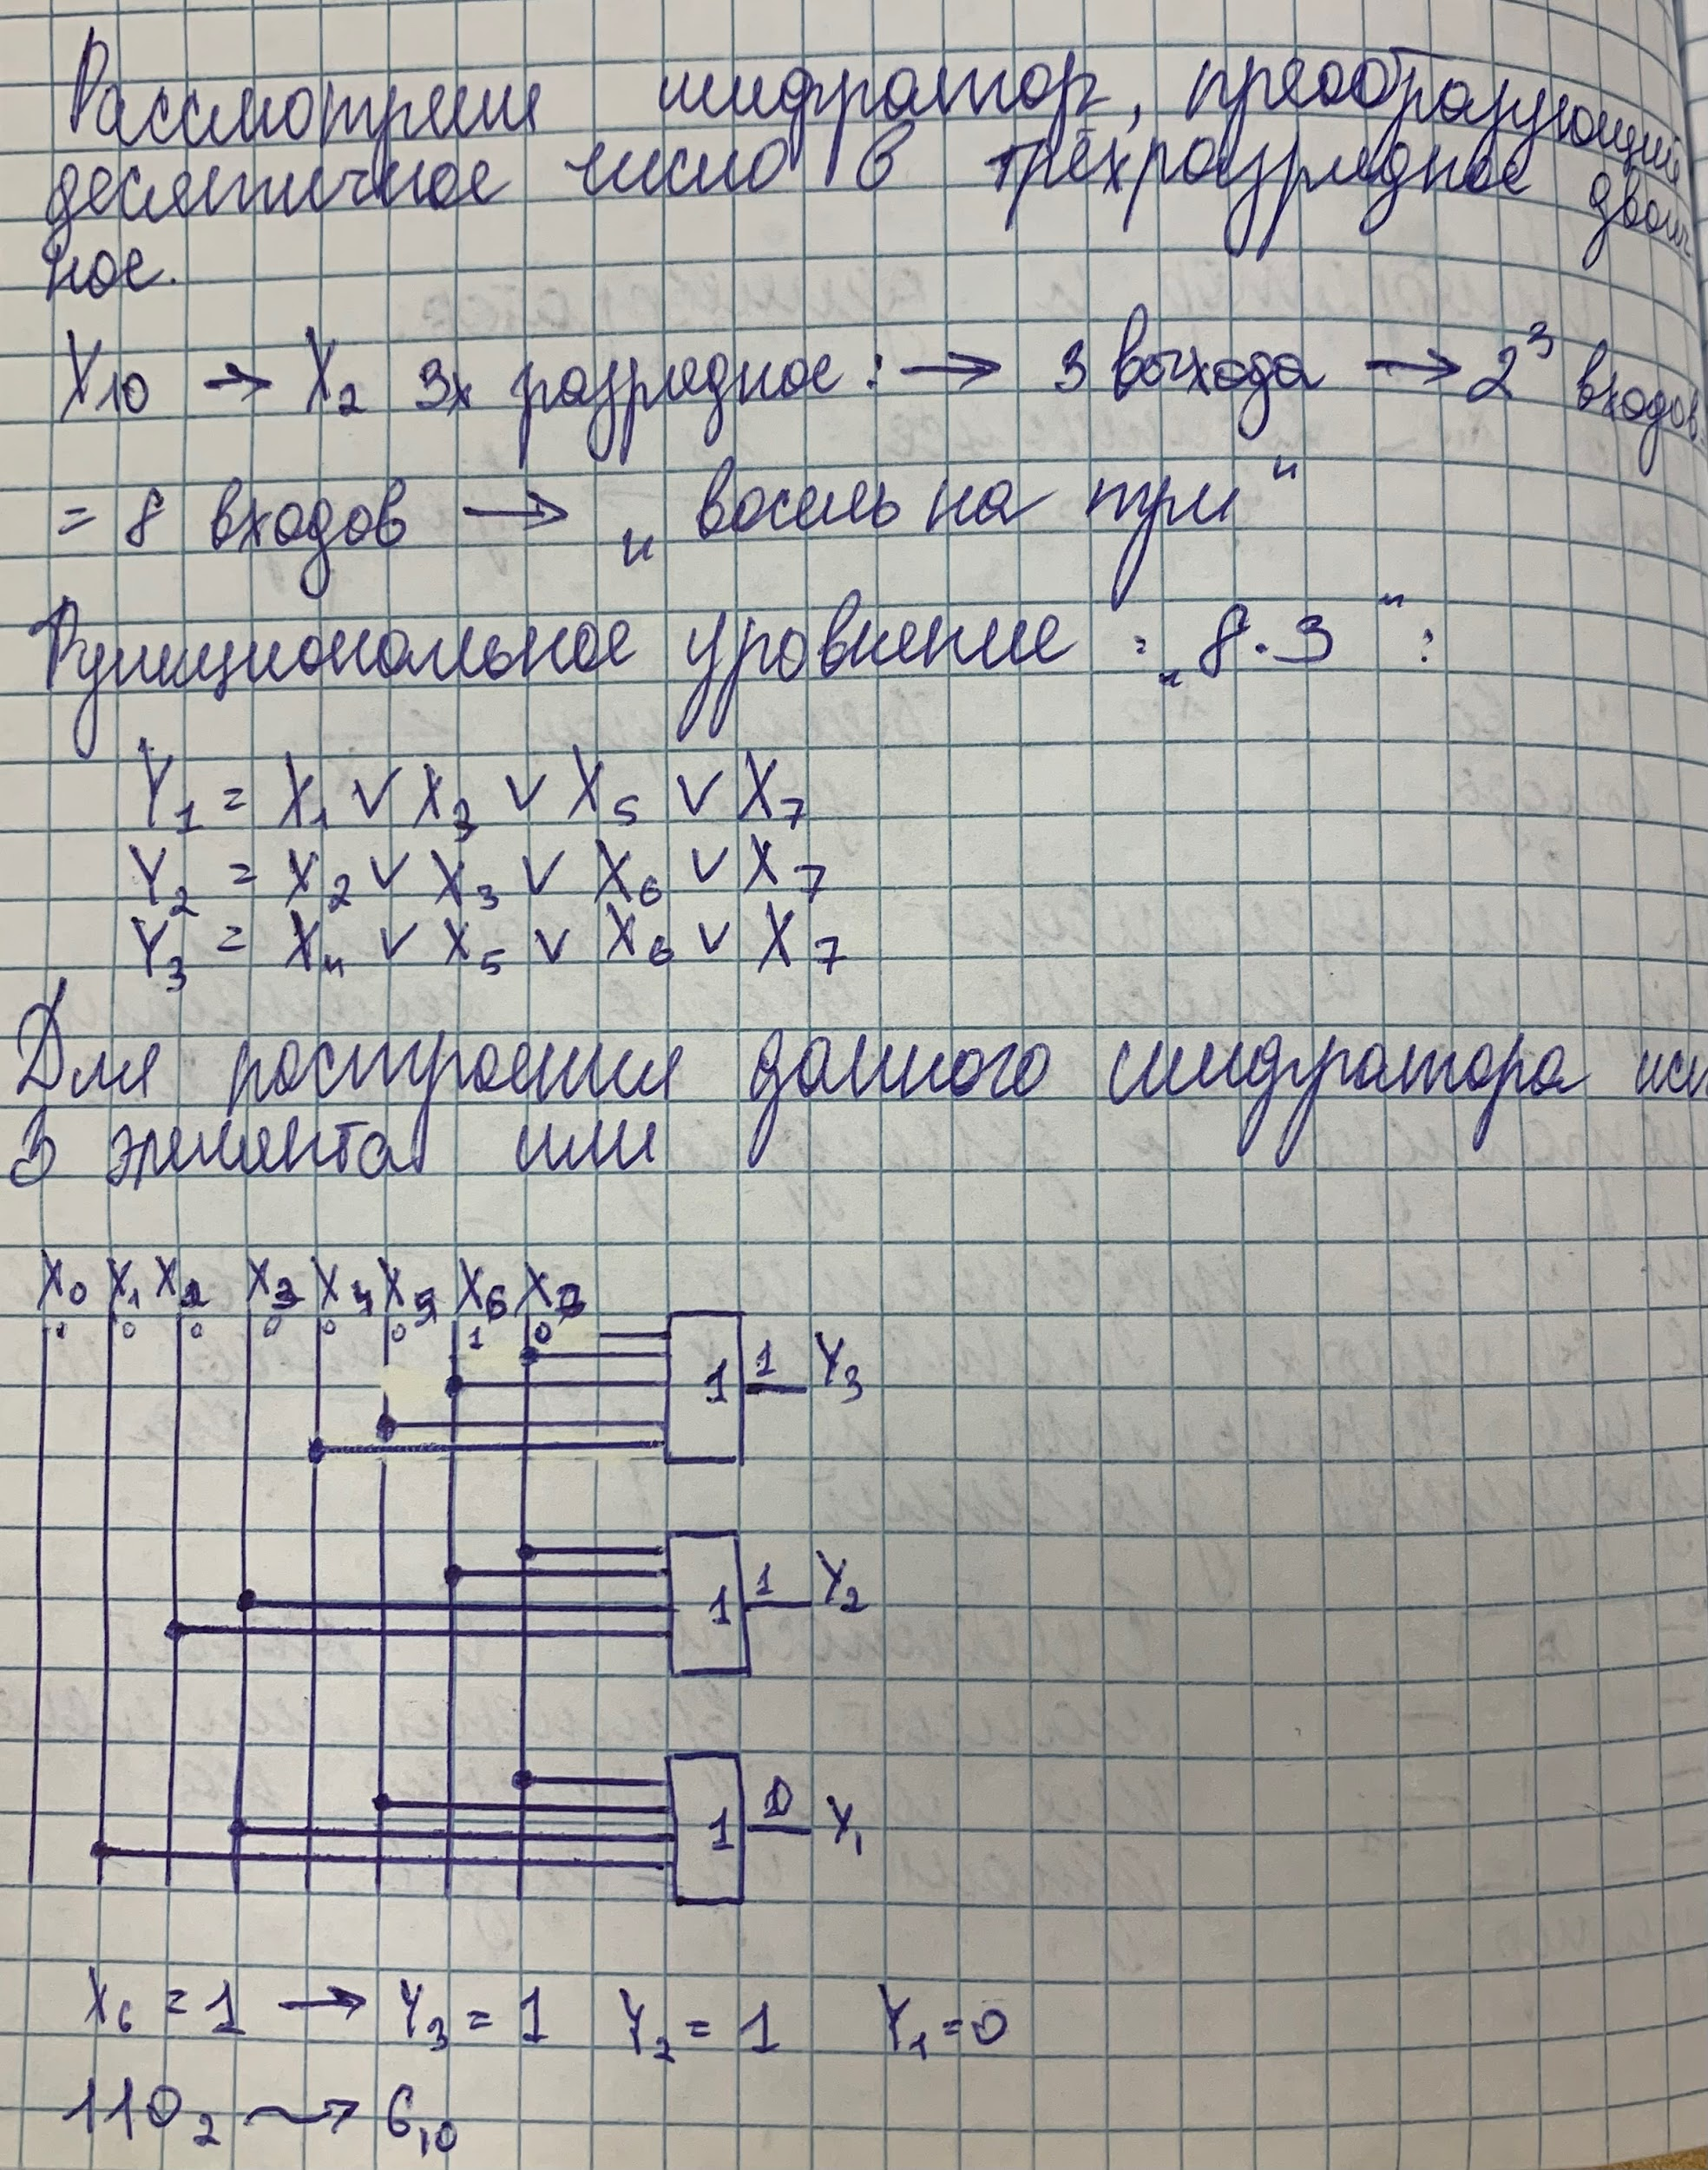 Рассмотрим шифратор, преобразующий
десятичное число в трёхразрядное двоич
ное.
X₁₀ → X₂ 3х разрядное: → 3 выхода → 2³ входов
= 8 входов → „восемь на три“
Функциональное уровнение : „8.3“ :
Y₁ = X₁ ∨ X₃ ∨ X₅ ∨ X₇
Y₂ = X₂ ∨ X₃ ∨ X₆ ∨ X₇
Y₃ = X₄ ∨ X₅ ∨ X₆ ∨ X₇
Для построения данного шифратора исп
3 элемента или
X₀ X₁ X₂ X₃ X₄ X₅ X₆ X₇
0 0 0 0 0 1 0
1 1 Y₃
1 1 Y₂
1 0 Y₁
X₆ = 1 → Y₃ = 1 Y₂ = 1 Y₁ = 0
110₂ ⤳ 6₁₀